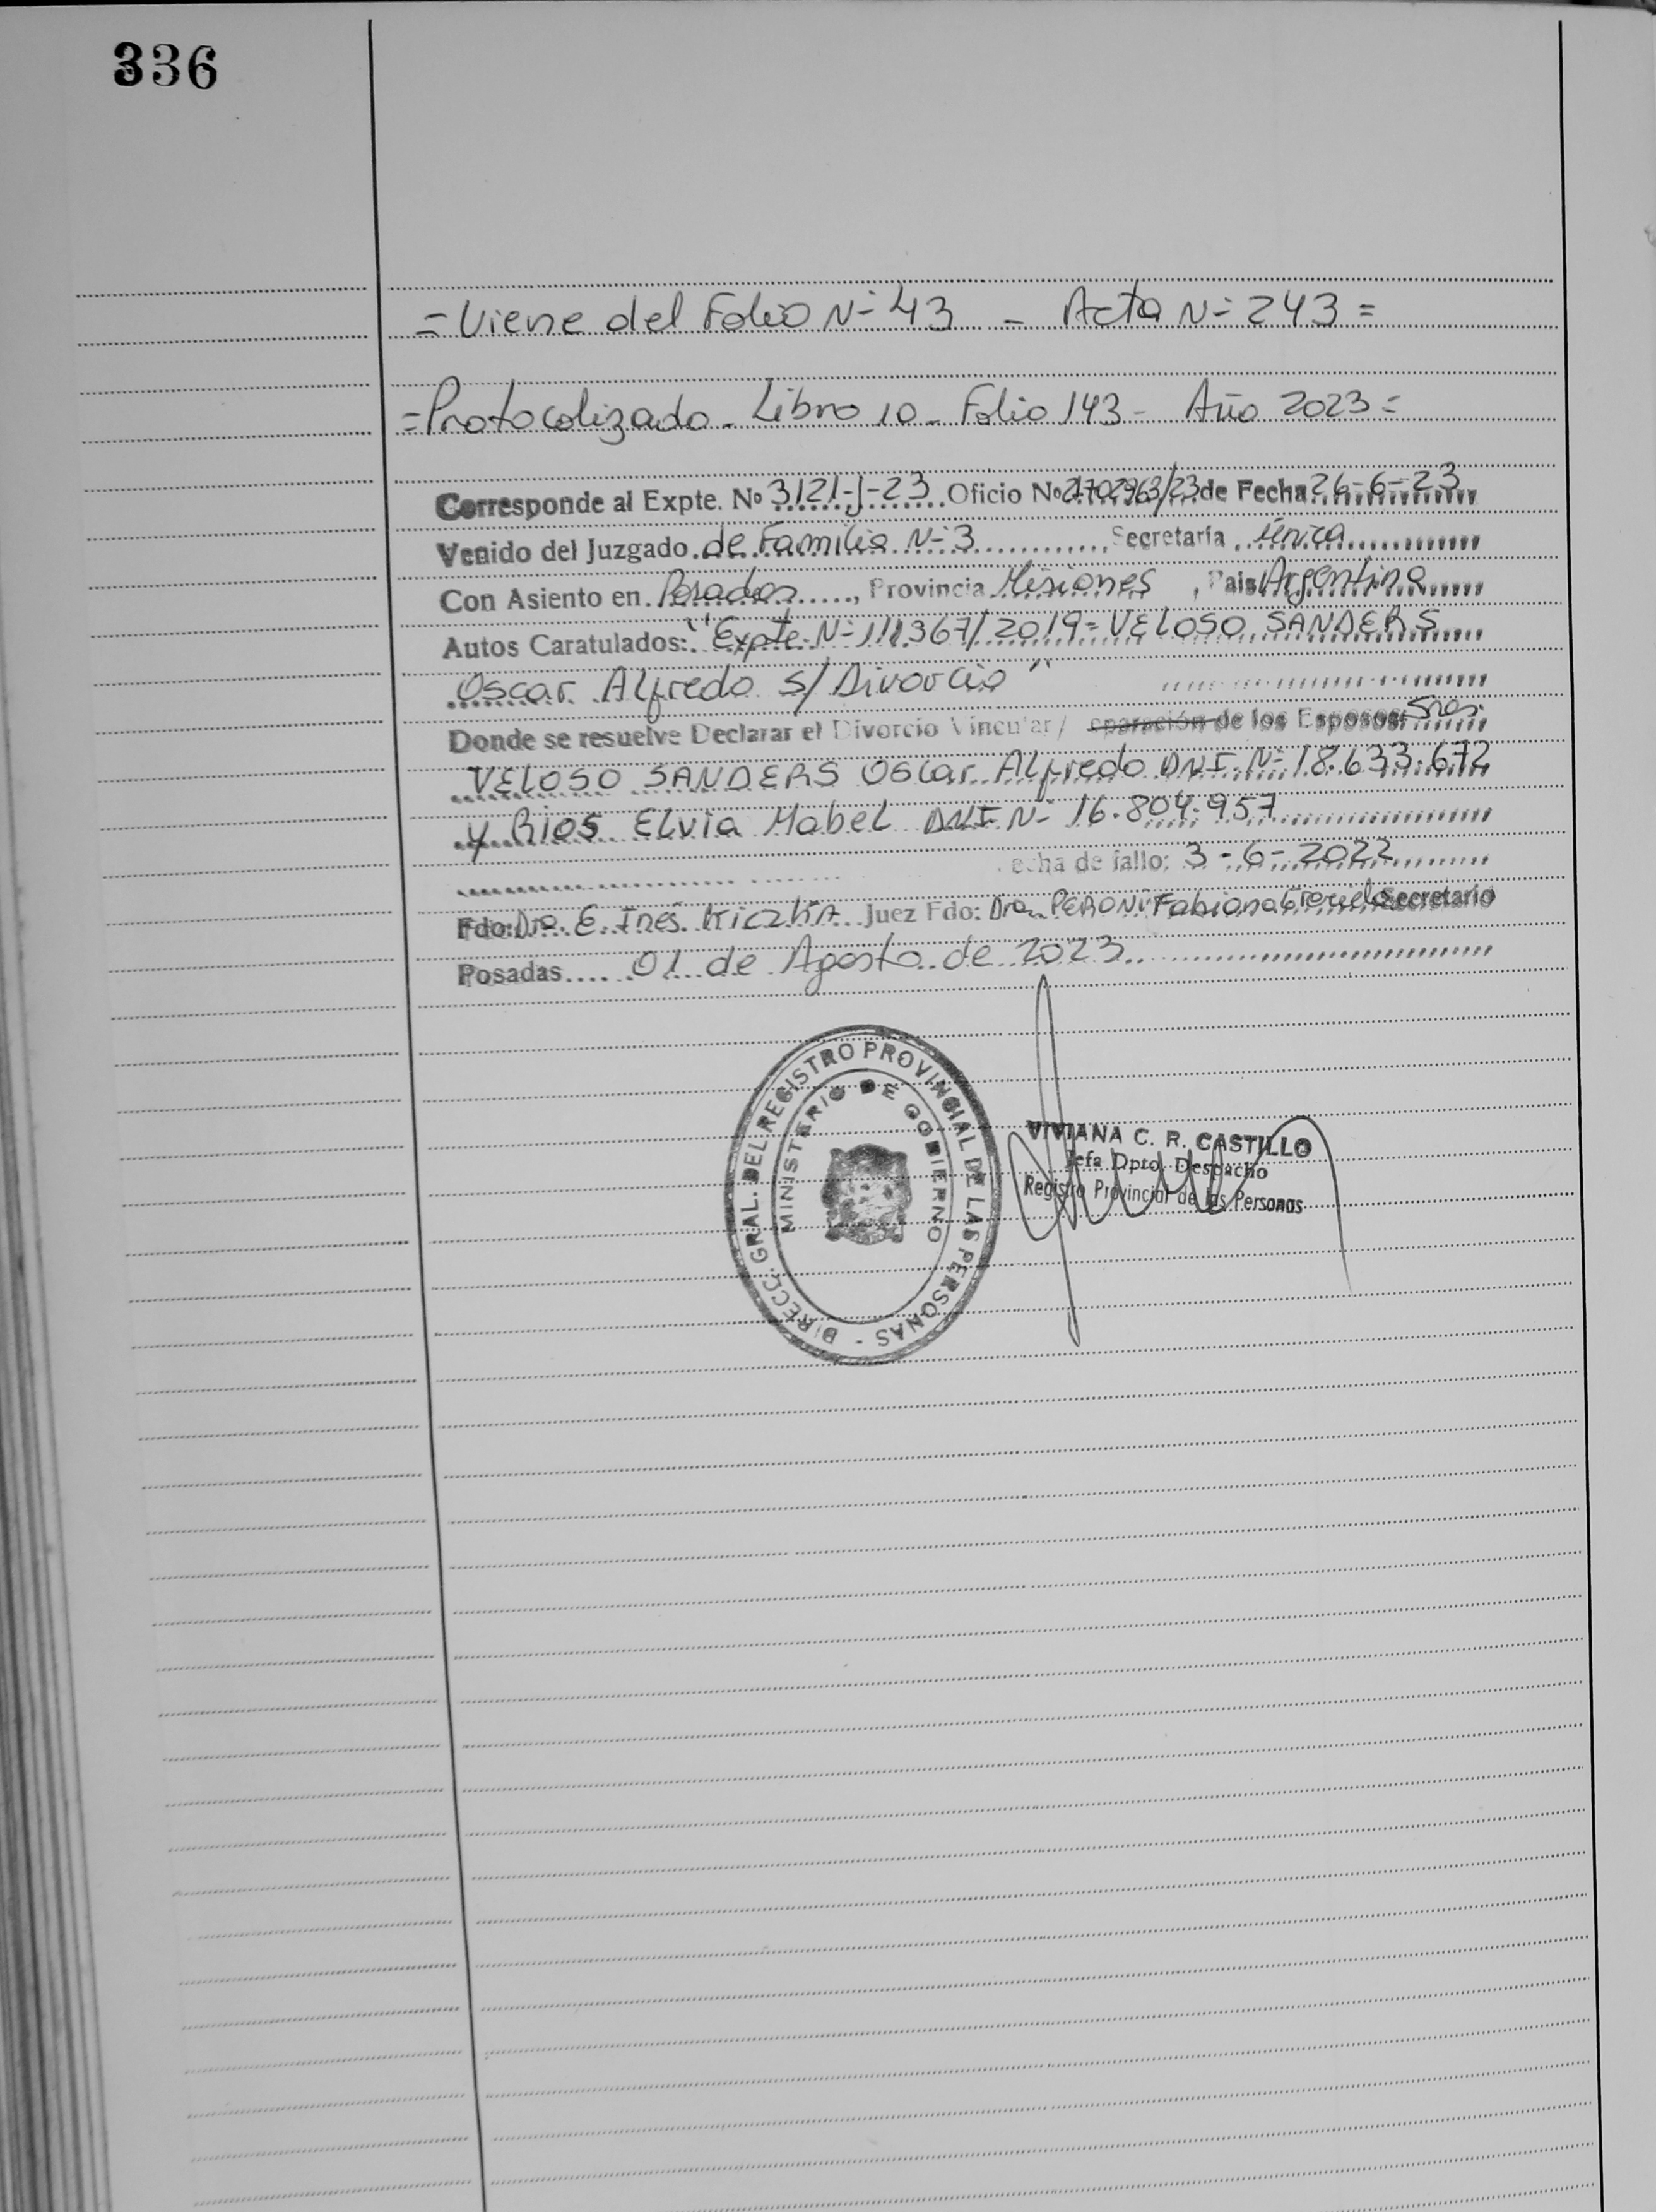 336
= Viene del Folio N- 43 - Acta N- 243 =
= Protocolizado - Libro 10 - Folio 143 - Año 2023 =
Corresponde al Expte. Nº 3121-J-23 Oficio Nº 2702963/23 de Fecha 26-6-23
Venido del Juzgado de Familia N- 3 Secretaría única
Con Asiento en Posadas, Provincia Misiones, Pais Argentina
Autos Caratulados: "Expte. N- 111367/2019 = VELOSO SANDERS
Oscar Alfredo s/ Divorcio"
Donde se resuelve Declarar el Divorcio Vincular / eparación de los Esposos: Sres.
VELOSO SANDERS Oscar Alfredo DNI N- 18.633.672
y Rios Elvia Mabel DNI N- 16.804.957
echa de fallo: 3-6-2022
Fdo: Dra. E. Inés Juez Fdo: Dra. PERONI Fabiana Graciela Secretario
Posadas 01 de Agosto de 2023
DIRECC. GRAL. DEL REGISTRO PROVINCIAL DE LAS PERSONAS -
MINISTERIO DE GOBIERNO
VIVIANA C. R. CASTILLO
Jefa Dpto. Despacho
Registro Provincial de las Personas